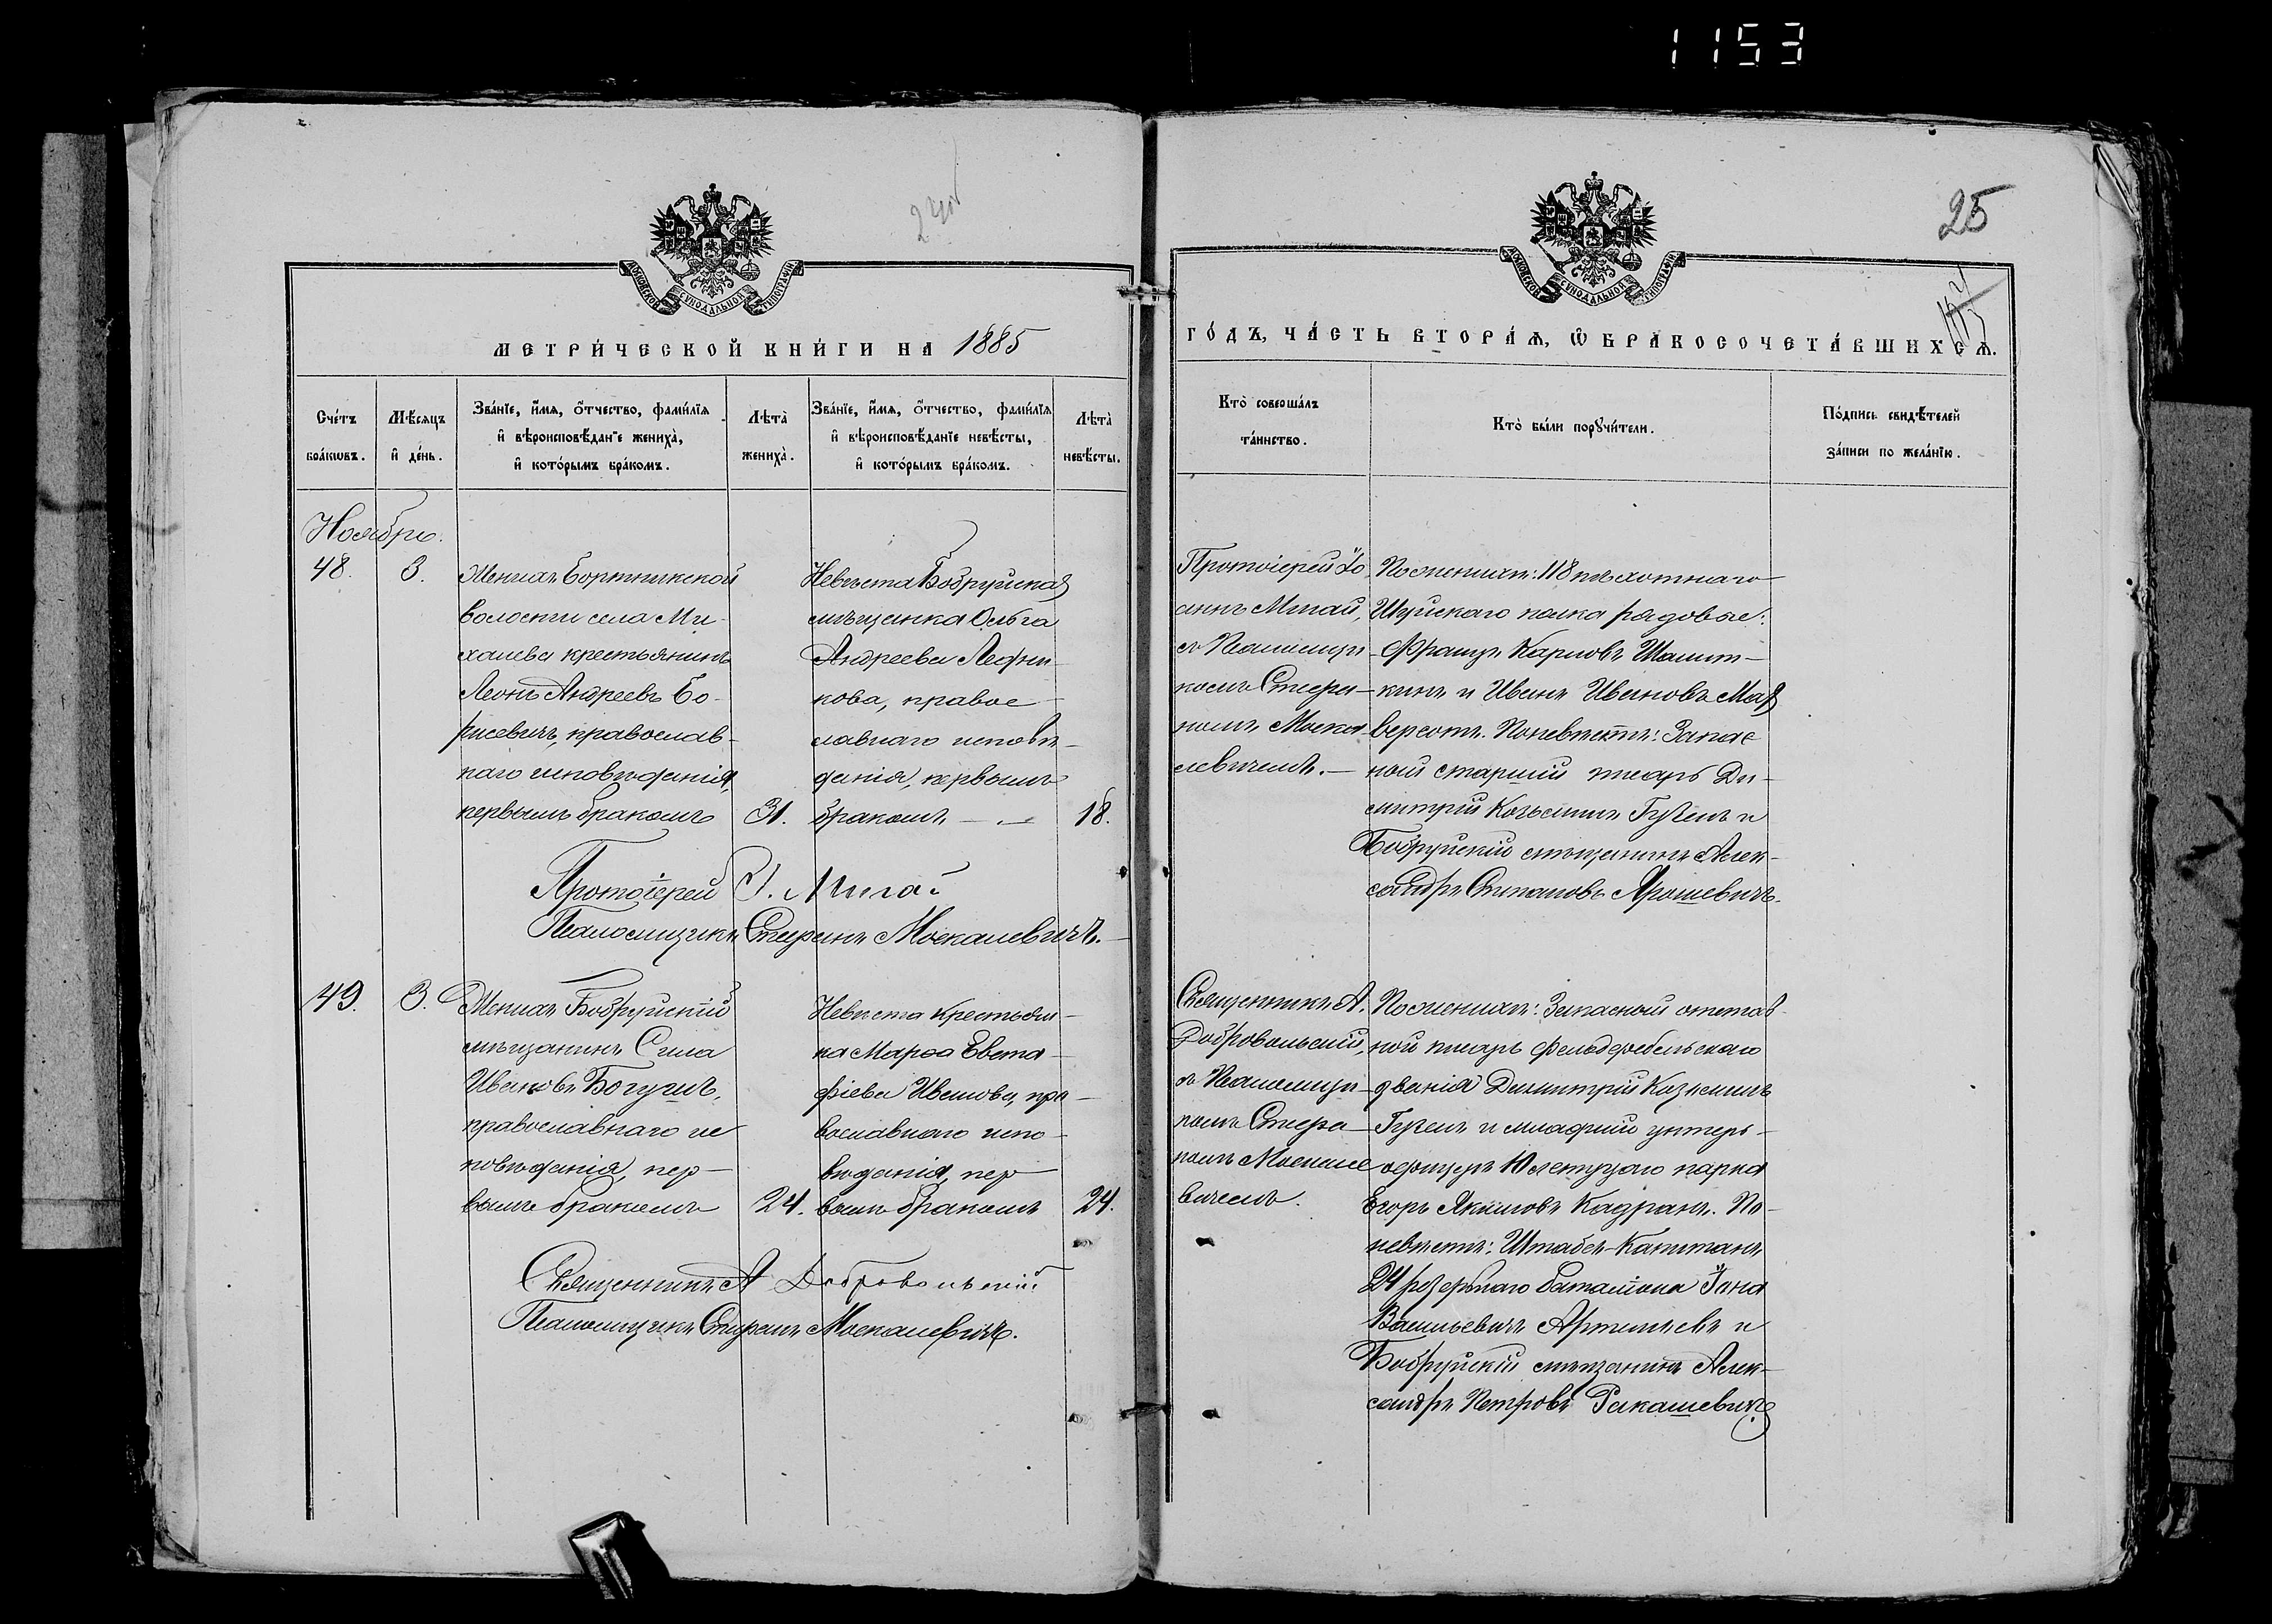 1153
25
МОСКОВСКОЙ СѴНОДАЛЬНОЙ ТИПОГРАФИИ
МОСКОВСКОЙ СѴНОДАЛЬНОЙ ТИПОГРАФИИ
МЕТРИ́ЧЕСКОЙ КНИ́ГИ НА 1885
ГО́ДЪ, ЧА́СТЬ ВТОРА́Ѧ, Ѽ БРАКОСОЧЕТА́ВШИХСѦ.
Сче́тъ
бра́кѡвъ.
Мѣ́сѧцъ
и҆ де́нь.
Зва́нїе, и҆́мѧ, ѻ҆́тчество, фами́лїѧ
и҆ вѣроисповѣ́данїе женихà,
и҆ кото́рымъ бра́комъ.
Лѣтà
женихà.
Зва́нїе, и҆́мѧ, ѻ҆́тчество, фами́лїѧ
и҆ вѣроисповѣ́данїе невѣ́сты,
и҆ кото́рымъ бра́комъ.
Лѣтà
невѣ́сты.
Ктò соверша́лъ
та́инство.
Ктò бы́ли порꙋчи́тели.
По́дпись свидѣ́телей
за́писи по жела́нїю.
Ноябрь.
48.
3.
Женихъ Бортникской
волости села Ми-
халева крестьянинъ
Леонъ Андреевъ Бо-
рисевичъ, православ-
наго исповѣданія,
первымъ бракомъ
31.
Невѣста Бобруйская
мѣщанка Ольга
Андреева
кова, право-
славнаго исповѣ-
данія, первымъ
бракомъ —
18.
Протоіерей Іо
аннъ Мигай,
съ Псаломщи-
комъ Стефа-
номъ Моска-
левичемъ. —
По женихѣ: 118 пѣхотнаго
Шуйскаго полка рядовые:
Францъ Карловъ
кинъ и Иванъ Ивановъ
По невѣстѣ: Запас
ной старшій писарь Ди-
митрій Козьминъ и
Бобруйскій мѣщанинъ Алек-
сандръ Степановъ Ярошевичъ.
Протоіерей І. Мигай
Псаломщикъ Стефанъ Москалевичъ. —
49.
3.
Женихъ Бобруйскій
мѣщанинъ Сила
Ивановъ Богушъ,
православнаго ис
повѣданія, пер-
вымъ бракомъ
24.
Невѣста крестьян-
ка Марѳа Евста-
фіева Иванова, пра-
вославнаго испо-
вѣданія, пер-
вымъ бракомъ
24.
Священникъ А.
Добровольскій,
съ Псаломщи-
комъ Стефа-
номъ Москале
вичемъ.
По женихѣ: Запасный отстав-
ной писарь фельдфебельскаго
званія Димитрій Козьминъ
и младшій унтеръ-
офицеръ летучаго парка
Егоръ Якимовъ Кадранъ. По-
невѣстѣ: Штабсъ-Капитанъ
24 резервнаго баталіона
Васильевичъ Артемьевъ и
Бобруйскій мѣщанинъ Алек-
сандръ Петровъ Ракашевичъ
Священникъ А Добровольскій
Псаломщикъ Стефанъ Москалевичъ.